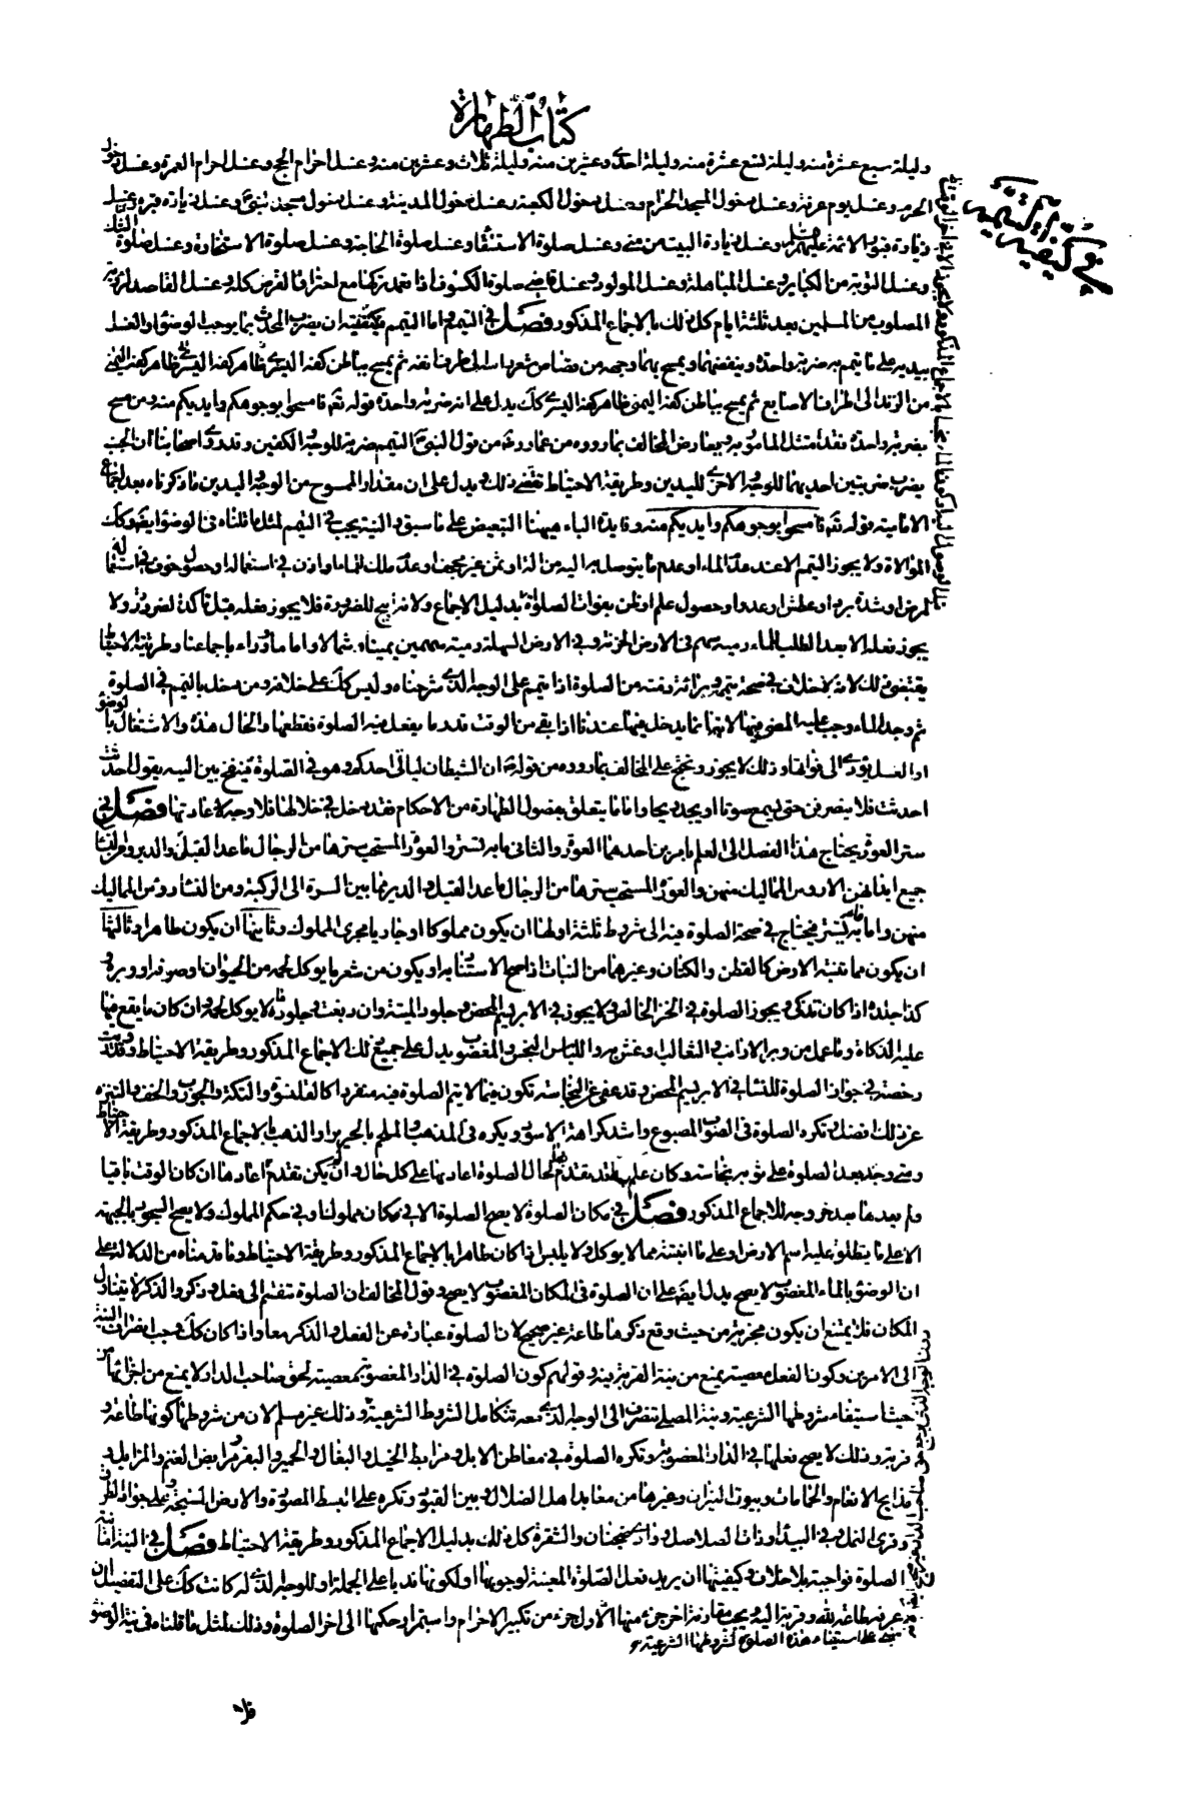 كتاب الطهارة
وليلة سبع عشرة منه وليلة تسع عشرة منه وليلة احدى وعشرين منه وليلة ثلاث وعشرين منه وغسل احرام الحج وغسل احرام العمرة وغسل دخول
الحرم وغسل يوم عرفة وغسل دخول المسجد الحرام وغسل دخول الكعبة وغسل دخول المدينة وغسل دخول مسجد النبي وغسل زيارة قبره وغسل
زيارة قبور الائمة عليهم وغسل زيارة البيت من منى وغسل صلوة الاستسقاء وغسل صلوة الحاجة وغسل صلوة الاستخارة وغسل صلوة الشكر
وغسل التوبة من الكبائر وغسل المباهلة وغسل المولود وغسل قاضي صلوة الكسوف اذا تعمد تركها مع احتراق القرص كله وغسل القاصد لرؤية
المصلوب من المسلمين بعد ثلثة ايام كل ذلك بالاجماع المذكور فصل في التيمم واما التيمم فكيفيته ان يضرب المحدث بما يوجب الوضوء او الغسل
بيديه على ما يتيمم به ضربة واحدة وينفضهما ويمسح بهما وجهه من قصاص شعر راسه الى طرف انفه ثم يمسح بباطن كفه اليسرى ظاهر كفه اليمنى
من الزند الى اطراف الاصابع ثم يمسح بباطن كفه اليمنى ظاهر كفه اليسرى كك يدل على انه ضربة واحدة قوله تع فامسحوا بوجوهكم وايديكم منه ومن مسح
بضربة واحدة فقد امتثل المامور به ويعارض المخالف بما رووه من عمار وغه من قول النبي التيمم ضربة للوجه والكفين وقد روى اصحابنا ان الجنب
يضرب ضربتين احديهما للوجه والاخرى لليدين وطريقة الاحتياط تقتضي ذلك ويدل على ان مقدار الممسوح من الوجه واليدين ما ذكرناه بعد اجماع
الامامية قوله تع فامسحوا بوجوهكم وايديكم منه وفايدة الباء هيهنا التبعيض على ما سبق والنية يجب في التيمم لمثل ما قلناه في الوضوء ايضا وكك
الموالاة ولا يجوز التيمم الا عند عدم الماء او عدم ما يتوصل به اليه من الة او ثمن غير مجحف او عدم ملك للماء او اذن في استعماله او حصول خوف في استعماله
لمرض او شدة برد او عطش او عدو او حصول علم او ظن بفوات الصلوة بدليل الاجماع ولانه ابيح للضرورة فلا يجوز فعله قبل تاكد الضرورة ولا
يجوز فعله الا بعد الطلب للماء رمية سهم في الارض الحزنة وفي الارض السهلة رمية سهمين يمينا وشمالا واماما ووراء باجماعنا وطريقة الاحتياط
يقتضي ذلك لانه لا خلاف في صحة تيممه وبرائة ذمته من الصلوة اذا تيمم على الوجه الذي شرحناه وليس كك على خلافه ومن دخل بالتيمم في الصلوة
ثم وجد الماء وجب عليه المضي فيها لانه انما يدخل فيها عندنا اذا بقي من الوقت قدر ما يفعل فيه الصلوة فقطعها والحال هذه والاشتغال بالوضوء
او الغسل يؤدي الى فواتها وذلك لا يجوز ونحتج على المخالف بما رووه من قوله ان الشيطان لياتي احدكم وهو في الصلوة فينفخ بين اليتيه يقول احدثت
احدثت فلا ينصرفن حتى يسمع صوتا او يجد ريحا واما ما يتعلق بفصول الطهارة من الاحكام فقد دخل في خلالها فلا وجه لاعادتها فصل في
ستر العورة يحتاج هذا الفصل الى العلم بامرين احدهما العورة والثاني ما به تستر والعورة المستحب سترها من الرجال ما عدا القبل والدبر وعورة النساء
جميع ابدانهن الا روس المماليك منهن والعورة المستحب سترها من الرجال ما عدا القبل والدبر مما بين السرة الى الركبة ومن النساء روس المماليك
منهن واما ما به يستر فيحتاج في صحة الصلوة فيه الى شروط ثلثة اولها ان يكون مملوكا او جاريا مجرى المملوك وثانيها ان يكون طاهرا وثالثها
ان يكون مما تنبته الارض كالقطن والكتان وغيرهما من النبات اذا صح الاستتار به او يكون من شعر ما يوكل لحمه من الحيوان او صوفه او وبره
كذا جلده اذا كان مذكى ويجوز الصلوة في الخز الخالص ولا يجوز في الابريسم المحض وجلود الميتة وان دبغت وجلود ما لا يوكل لحمه وان كان ما يقع فيها
عليه الذكاة وما عمل من وبر الارانب والثعالب وغش به واللباس النجس والمغصوب يدل على جميع ذلك الاجماع المذكور وطريقة الاحتياط وقد وردت
رخصة في جواز الصلوة للنساء في الابريسم المحض وقد عفى عن النجاسة تكون فيما لا يتم الصلوة فيه منفردا كالقلنسوة والتكة والجورب والخف والتنزه
عن ذلك افضل وتكره الصلوة في الثوب المصبوغ واشد كراهة الاسود ويكره في المذهب والملحم بالحرير او الذهب بالاجماع المذكور وطريقة الاحتياط
ومتى وجد بعد الصلوة على ثوبه نجاسة وكان علمه بها قد تقدم لحال الصلوة اعادها على كل حال وان لم يكن تقدم اعادها ان كان الوقت باقيا
ولم يعدها بعد خروجه للاجماع المذكور فصل في مكان الصلوة لا يصح الصلوة الا في مكان مملوك او في حكم المملوك ولا يصح السجود بالجبهة
الا على ما يطلق عليه اسم الارض او على ما انبتته مما لا يوكل ولا يلبس اذا كان طاهرا بالاجماع المذكور وطريقة الاحتياط وما قدمناه من الدلالة على
ان الوضوء بالماء المغصوب لا يصح يدل ايضا على ان الصلوة في المكان المغصوب لا يصح وقول المخالف ان الصلوة تنقسم الى فعل وذكر والذكر لا يتناول
المكان فلا يمتنع ان يكون مجزية من حيث وقع ذكرها طاعة غير صحيح لان الصلوة عبارة عن الفعل والذكر معا واذا كان كك وجب انصراف النية
الى الامرين وكون الفعل معصية يمنع من نية القربة فيه وقولهم كون الصلوة في الدار المغصوبة معصية لحق صاحب الدار لا يمنع من اجزائها من
حيث استيفاء شروطها الشرعية ونية المصلي تنصرف الى الوجه الذي معه تتكامل الشروط الشرعية وذلك غير مسلم لان من شروطها كونها طاعة و
قربة وذلك لا يصح فعلها في الدار المغصوبة وتكره الصلوة في معاطن الابل ومرابط الخيل والبغال والحمير والبقر ومرابض الغنم والمزابل و
مذابح الانعام والحمامات وبيوت النيران وغيرها من معابد اهل الضلال وبين القبور وتكره على البسط المصورة والارض السبخة وعلى جواد الطرق
وقرى النمل وفي البيداء وذات الصلاصل وضجنان والشقرة كل ذلك بدليل الاجماع المذكور وطريقة الاحتياط فصل في النية اما نية
الصلوة فواجبة بلا خلاف وكيفيتها ان يريد فعل الصلوة المعينة لوجوبها او لكونها ندبا على الجملة او للوجه الذي له كانت كك على التفضيل ان
عرفه طاعة لله وقربة اليه ويجب مقارنة اخر جزء منها لاول جزء من تكبير الاحرام واستمرار حكمها الى اخر الصلوة وذلك لمثل ما قلناه في نية الوضوء
على استيفاء هذه الصلوة لشروطها الشرعية